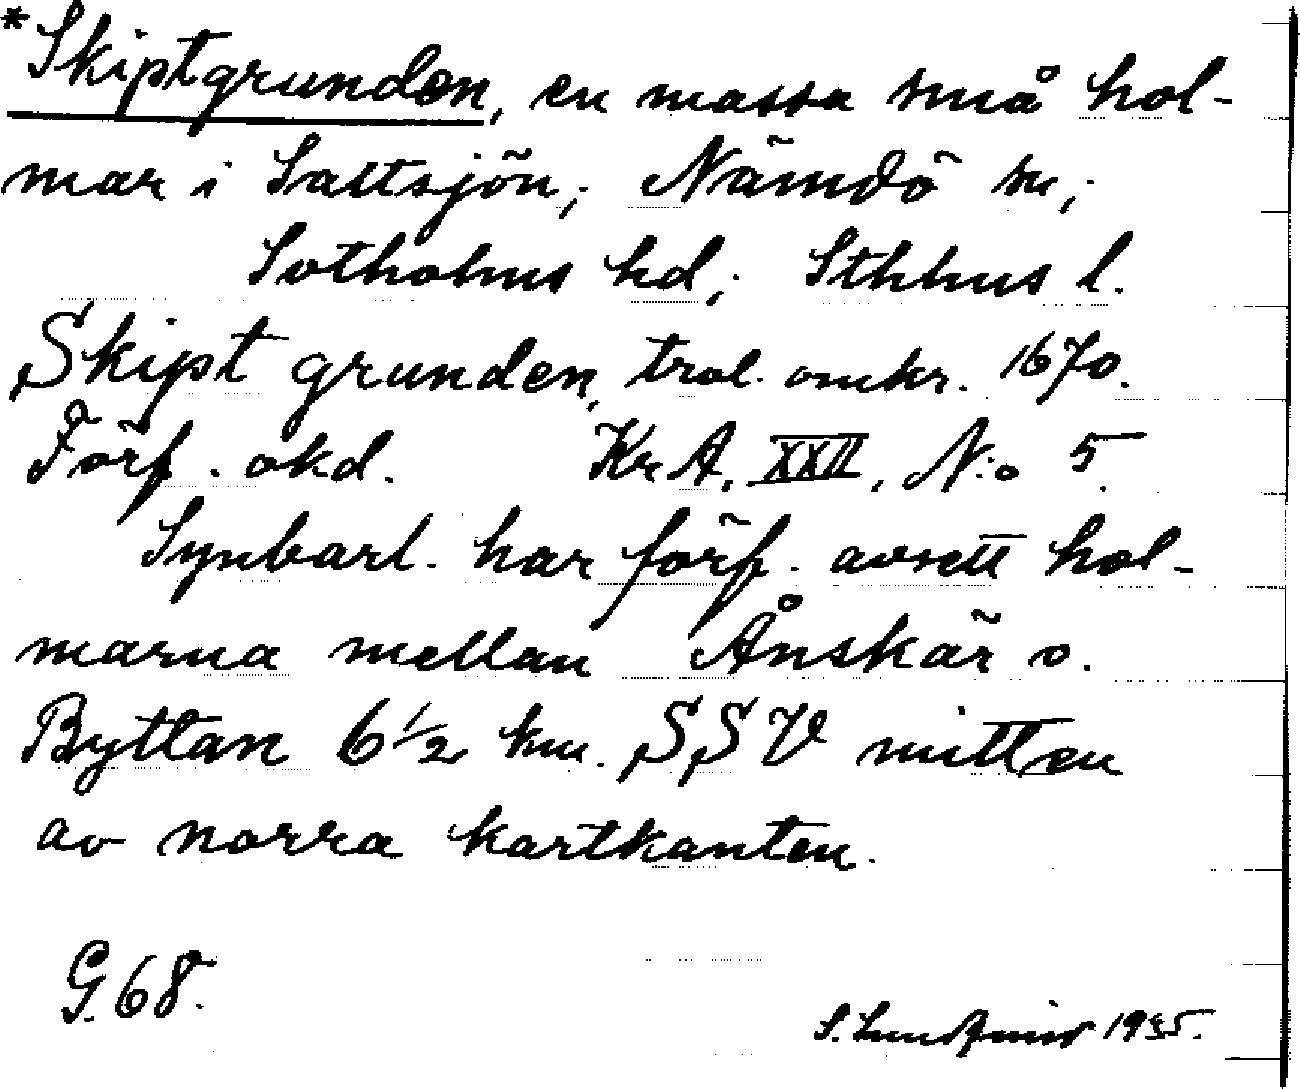 *Skiptgrunden, en massa små hol-
mar i Saltsjön; Nämdö sn;
Sotholms hd; Sthlms l.
Skipt grunden, trol. omkr. 1670.
Förf. okd. KrA, XXII, N:o 5.
Synbarl. har förf. avsett hol-
marna mellan Ånskär o.
Byttan 6 1/2 km. SSV mitten
av norra kartkanten.
G. 68.
S. Lundqvist 1935.